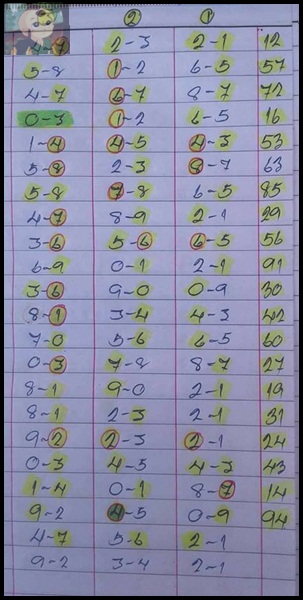 ② ①
4-7 2-3 2-1 12
5-8 1-2 6-5 57
4-7 6-7 8-7 72
0-3 1-2 6-5 16
1-4 4-5 4-3 53
5-8 2-3 8-7 63
5-8 7-8 6-5 85
4-7 8-9 2-1 29
3-6 5-6 6-5 56
6-9 0-1 2-1 91
3-6 9-0 0-9 30
8-1 3-4 4-3 42
7-0 5-6 6-5 60
0-3 7-8 8-7 27
8-1 9-0 2-1 19
8-1 2-3 2-1 31
9-2 2-3 2-1 24
0-3 4-5 4-3 43
1-4 0-1 8-7 14
9-2 4-5 0-9 94
4-7 5-6 2-1
9-2 3-4 2-1